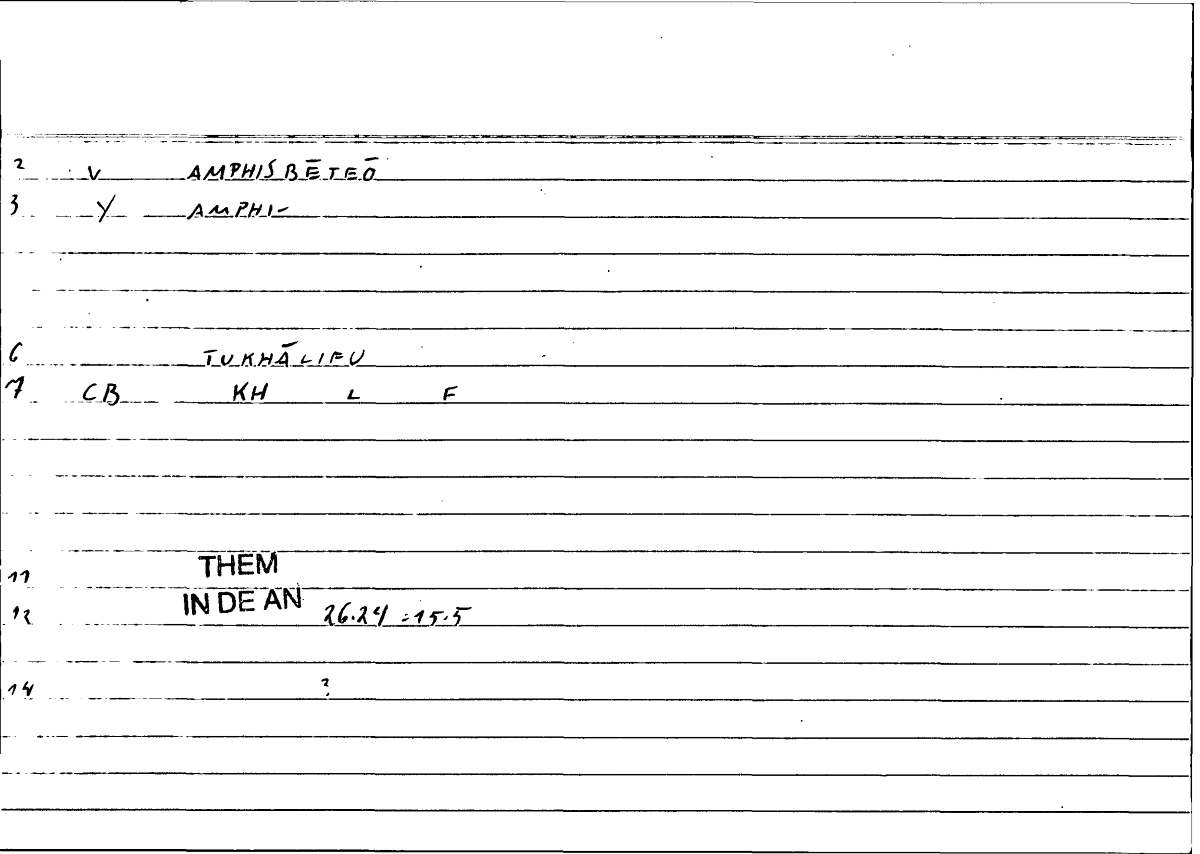 2 V AMPHISBĒTEŌ
3 Y AMPHI-
6 TUKHĀLIFU
7 CB KH L F
11 THEM
12 IN DE AN 26.24 =15.5
14 ?